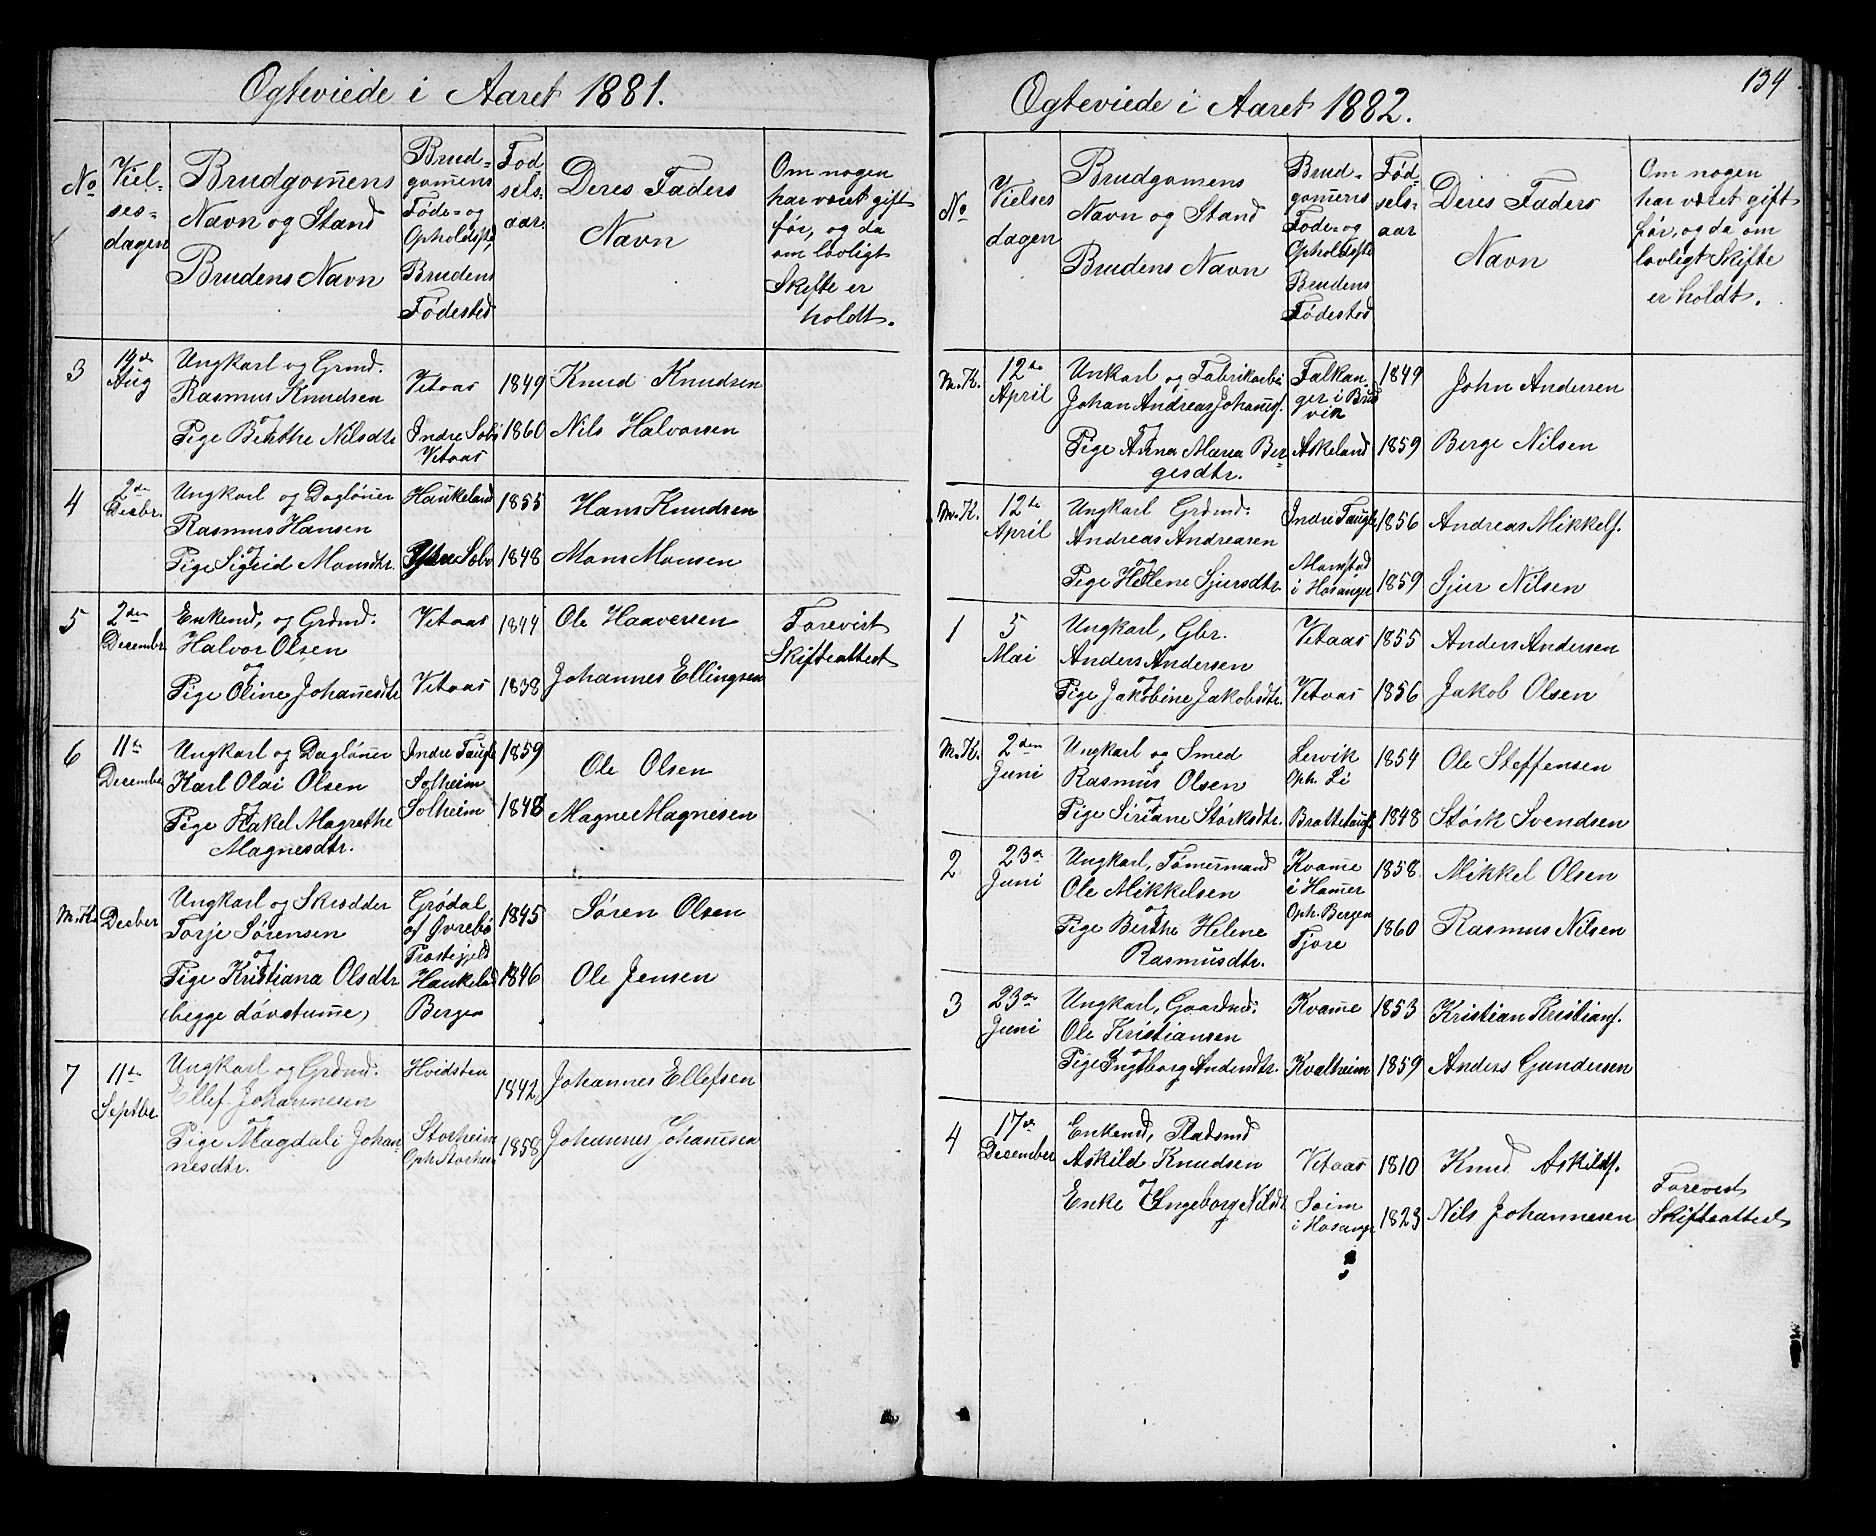 Ogteviede i Aaret 1881.
No
Viel-
ses-
dagen
Brudgomens
Navn og Stand
Brudens Navn
Brud-
gomens
Føde- og
Opholdste,
Brudens
Fødested
Fød
sels-
aar.
Deres Faders
Navn
Om nogen
har været gift
før, og da
om lovligt
Skifte er
holdt.
3
14de
Aug
Ungkarl og Grmd.
Rasmus Knudsen
og
Pige Berthe Nilsdtr
Vetaas
Indre Sæbø
Vetaas
1849
1860
Knud Knudsen
Nils Halvorsen
4
2den
Decbr.
Ungkarl og Dagløner
Rasmus Hansen
og
Pige Sigrid Monsdtr.
Haukeland
Ytre Sæbø
1855
1848
Hans Knudsen
Mons Monsen
5
2den
December
Enkemd, og Grdmd.
Halvor Olsen
og
Pige Oline Johanesdtr
Vetaas
Vetaas
1844
1838
Ole Haaversen
Johannes Ellingsen
Forevist
Skifteattest
6
11te
December
Ungkarl og Dagløner
Karl Olai Olsen
og
Pige Rakel Magrethe
Magnesdtr.
Indre Taugl
Solheim
Solheim
1859
1848
Ole Olsen
Magne Magnesen
M.K.
Decber
Ungkarl og Skrædder
Torje Sørensen
og
Pige Kristiana Olsdtr
(begge døvstume)
Grødal
af Øvrebø
Præstegjeld
Haukeland
Bergen
1845
1846
Søren Olsen
Ole Jensen
7
11te
Septbr.
Ungkarl og Grdmd.
Ellef Johannesen
og
Pige Magdali Johan-
nesdtr.
Hvidsten
Storheim
Oph Storheim
1842
1858
Johannes Ellefsen
Johannes Johannsen
134.
Ogteviede i Aaret 1882.
No
Vielses
dagen
Brudgomens
Navn og Stand
Brudens Navn
Brud-
gomens
Føde- og
Opholdste
Brudens
Fødested
Fød-
sels-
aar
Deres Faders
Navn
Om nogen
har været gift
før, og da om
lovligt Skifte
er holdt.
M.K.
12te
April
Unkarl og Fabrikarbei
Johan Andreas Johansf.
og
Pige Anna Maria Ber-
gesdtr.
Falkan
ger i Brud
vik
Askeland
1849
1859
John Andersen
Berge Nilsen
M.K.
12te
April
Ungkarl Grdmd.
Andreas Andreasen
og
Pige Helene Sjursdtr.
Indre Taugle
Mamstad
i Hosanger
1856
1859
Andreas Mikkelf.
Sjur Nilsen
1
5
Mai
Ungkarl, Gbr.
Anders Andersen
og
Pige Jakobine Jakobsdtr.
Vetaas
Vetaas
1855
1856
Anders Andersen
Jakob Olsen
M.K.
2den
Juni
Ungkarl og Smed
Rasmus Olsen
og
Pige Siriane Størksdtr.
Lervik
Oph. Li
Brattetaugl
1854
1848
Ole Steffensen
Størk Svendsen
2
23de
Juni
Ungkarl, Tømermand
Ole Mikkelsen
og
Pige Berthe Helene
Rasmusdtr.
Kvame
i Hamer
Oph. Bergen
Fjore
1858
1860
Mikkel Olsen
Rasmus Nilsen
3
23de
Juni
Ungkarl, Gaardmd.
Ole Kristiansen
og
Pige Ingeborg Andersdtr.
Kvame
Kvalheim
1853
1859
Kristian Kristianf.
Anders Gundersen
4
17de
December
Enkemd, Pladsmd
Askild Knudsen
og
Enke Ingeborg Nilsdt
Vetaas
Soim
i Hosanger
1810
1823
Knud Askildf.
Nils Johannesen
Forevist
Skifteattest